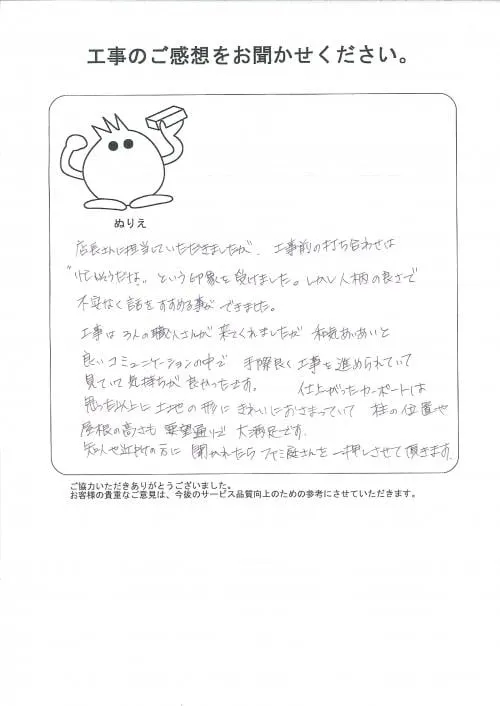 工事のご感想をお聞かせください。
ぬりえ
店長さんに担当していただきましたが、工事前の打ち合わせは
"忙しそうだな〟という印象を受けました。しかし人柄の良さで
不安なく話をすすめる事ができました。
工事は3人の職人さんが来てくれましたが 和気あいあいと
良いコミュニケーションの中で 手際良く工事を進められていて
見ていて気持ちが良かったです。 仕上がったカーポートは
思った以上に土地の形にきれいにおさまっていて 柱の位置や
屋根の高さも要望通りで大満足です。
知人や近所の方に聞かれたらファミ庭さんを一押しさせて頂きます。
ご協力いただきありがとうございました。
お客様の貴重なご意見は、今後のサービス品質向上のための参考にさせていただきます。